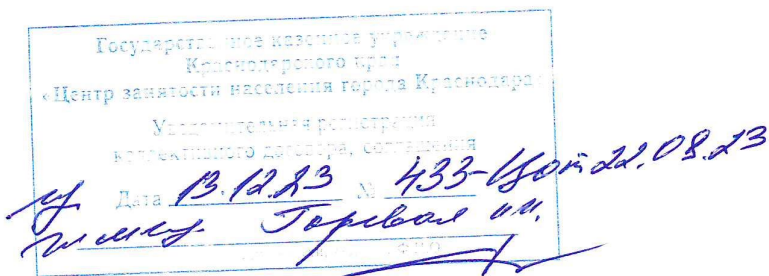 Государственное казенное учреждение
Краснодарского края
«Центр занятости населения города Краснодара»
Уведомительная регистрация
коллективного договора, соглашения
Дата 13.12.23 № 433-Ц от 22.08.23
Горевая И.И.
ФИО